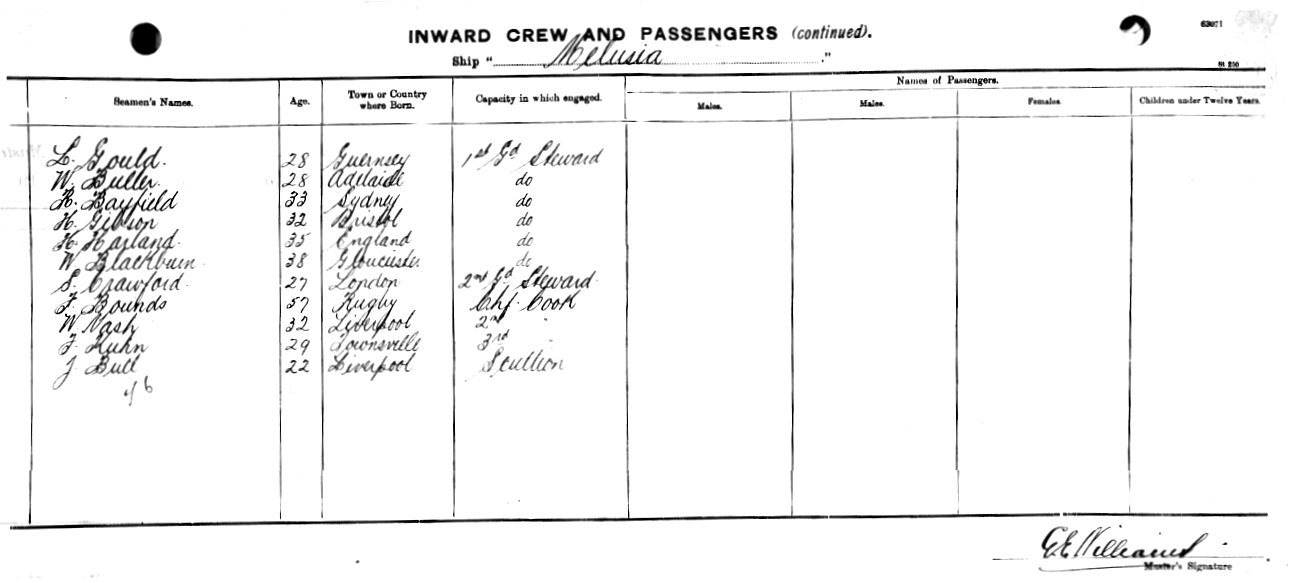 63071
INWARD CREW AND PASSENGERS (continued).
Ship "Melusia"
St 250
Seamen's Names. Age. Town or Country where Born. Capacity in which engaged. Names of Passengers.
Males. Males. Females. Children under Twelve Years.
L. Gould. 28 Guernsey 1st Gd Steward
W. Buller. 28 Adelaide do
H. Bayfield 33 Sydney do
H. Gibson 32 Bristol do
H. Harland. 35 England do
W. Blackburn. 38 Gloucester do
S. Crawford. 27 London 2nd Gd Steward.
F. Bounds 57 Rugby Chf. Cook
W. Nash 32 Liverpool 2nd "
F. Kuhn 29 Townsville 3rd "
J. Bull 22 Liverpool Scullion
46
G.E. Williams
Master's Signature